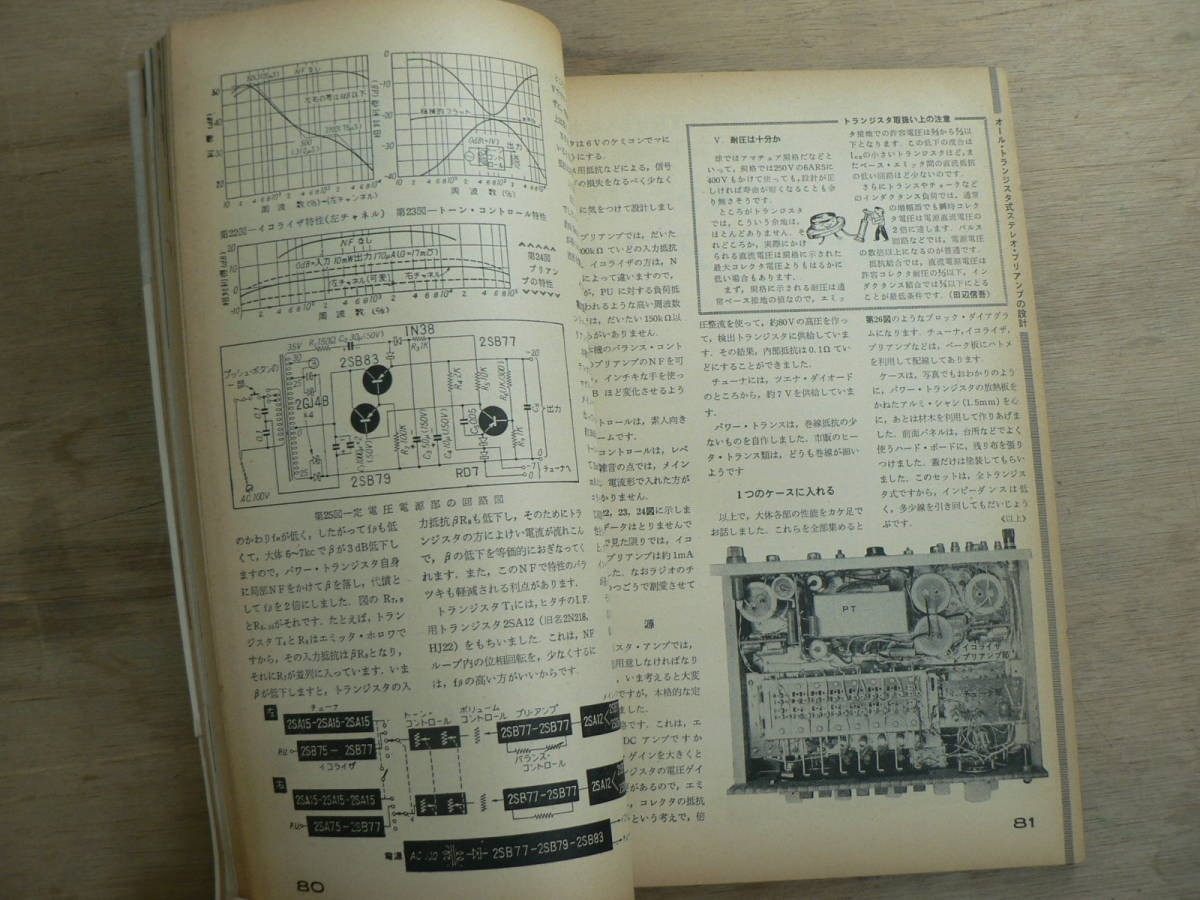 第22図―イコライザ特性(左チャネル)
第23図―トーン・コントロール特性
周波数(%)―(左チャンネル)
周波数(%)
NFなし
0dB=入力 10mW出力170μA(G=17mʊ)
左チャネル(可変)
右チャネル
第24図
プリアン
プの特性
周波数(%)
プッシュ・ボタンの
2GJ4B
2SB83
1N38
2SB77
2SB79
RD7
出力
チューナへ
AC100V
第25図―定電圧電源部の回路図
のかわりfαが低く，したがってfβも低
くて，大体 6～7kcでβが3dB低下し
ますので，パワー・トランジスタ自身
に局部NFをかけてβを落し，代償と
してfβを2倍にしました．図の R7,9
とR8,10がそれです．たとえば，トラン
ジスタT4とR8はエミッタ・ホロワで
すから，その入力抵抗はβR8となり，
それにR7が並列に入っています．いま
βが低下しますと，トランジスタの入
力抵抗βR8も低下し，そのためにトラ
ンジスタの方によけい電流が流れこん
で，βの低下を等価的におぎなってく
れます．また，このNFで特性のバラ
ツキも軽減される利点があります．
トランジスタT1には，ヒタチのI.F.
用トランジスタ2SA12（旧名2N218,
HJ22）をもちいました．これは，NF
ループ内の位相回転を，少なくするに
は，fβの高い方がいいからです．
左
チューナ
2SA15-2SA15-2SA15
P.U.
2SB75 - 2SB77
イコライザ
トーン・
コントロール
ボリューム
コントロール
プリ・アンプ
2SB77-2SB77
2SA12
バランス・
コントロール
右
2SA15-2SA15-2SA15
P.U.
2SA75 - 2SB77
2SB77-2SB77
2SA12
電源
AC 100
2SB77-2SB79-2SB83
80
トランジスタ取扱い上の注意
V 耐圧は十分か
球ではアマチュア規格だなどと
いって，規格では250Vの6AR5に
400Vもかけて使っても，設計が正
しければ寿命が短くなることも余
り無さそうです．
ところがトランジスタ
では，こういう余地は，
ほとんどありません．そ
れどころか，実際にかけ
られる直流電圧は規格に示された
最大コレクタ電圧よりもはるかに
低い場合もあります．
まず，規格に示される耐圧は通
常ベース接地の値なので，エミッ
タ接地での許容電圧は⅔から½以
下となります．この低下の度合は
Icoの小さいトランジスタほど，ま
たベース・エミッタ間の直流抵抗
の低い回路ほど少ないのです．
さらにトランスやチョークなど
のインダクタンス負荷では，通常
の増幅器でも瞬時コレク
タ電圧は電源直流電圧の
2倍に達します．パルス
回路などでは，電源電圧
の数倍以上になるのが普通です．
抵抗結合では，直流電源電圧は
許容コレクタ耐圧の½以下，イン
ダクタンス結合では¼以下にとる
ことが最低条件です．（田辺信吾）
オール・トランジスタ式ステレオ・プリアンプの設計
タは6Vのケミコンでマに
に気をつけて設計しまし
プリアンプでは，だいた
00kΩていどの入力抵抗
，イコライザの方は，N
によって違いますので，
が，PUに対する負荷抵
われるような高い周波数
は，だいたい150kΩ以
機のバランス・コント
のプリアンプのNFを可
，インチキな手を使っ
B ほど変化させるよう
トロールは，素人向き
ームです．
コントロールは，レベ
雑音の点では，メイン
電流形で入れた方が
かりません．
22，23，24図に示しま
データはとりませんで
で見た限りでは，イコ
プリアンプは約1mA
た．なおラジオのチ
つごうで割愛させて
源
スタ・アンプでは，
用意しなければなり
，いま考えると大変
ですが，本格的な定
ました．
格です．これは，エ
DC アンプですか
ゲインを大きくと
ンジスタの電圧ゲイ
があるので，エミ
，コレクタの抵抗
という考えで，倍
圧整流を使って，約80Vの高圧を作っ
て，検出トランジスタに供給していま
す．その結果，内部抵抗は0.1Ω てい
どにすることができました．
チューナには，ツエナ・ダイオード
のところから，約7Vを供給していま
す．
パワー・トランスは，巻線抵抗の少
ないものを自作しました．市販のヒー
タ・トランス類は，どうも巻線が細い
ようです
1つのケースに入れる
以上で，大体各部の性能をカケ足で
お話しました．これらを全部集めると
第26図のようなブロック・ダイアグラ
ムになります．チューナ，イコライザ，
プリアンプなどは，ベーク板にハトメ
を利用して配線してあります．
ケースは，写真でもおわかりのよう
に，パワー・トランジスタの放熱板を
かねたアルミ・シャシ（1.5mm）を心
に，あとは材木を利用して作りあげま
した．前面パネルは，台所などでよく
使うハード・ボードに，残り布を張り
つけました．蓋だけは塗装してもらい
ました．このセットは，全トランジス
タ式ですから，インピーダンスは低
く，多少線を引き回してもだいじょう
ぶです．
〈以上〉
PT
イコライザ
プリアンプ部
チューナ部
81